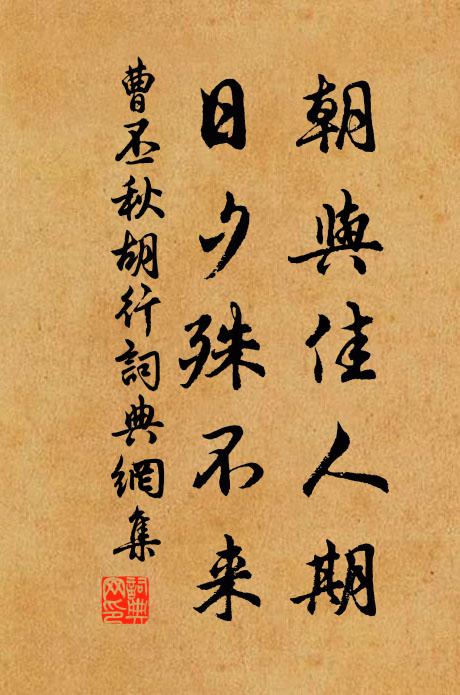 朝與佳人期
日夕殊不来
曹丕秋胡行詞典網集
詞典网印